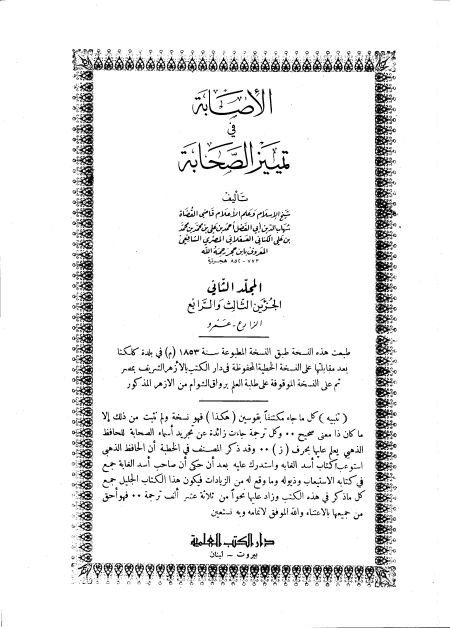 الإصابة
في
تمييز الصحابة
تأليف
شيخ الإسلام وعلم الأعلام قاضي القضاة
شهاب الدين أبي الفضل أحمد بن علي بن محمد بن محمد
بن علي الكناني العسقلاني المصري الشافعي
المعروف بابن حجر رحمه الله
٧٧٣ - ٨٥٢ هجرية
المجلد الثاني
الجزئين الثالث والرابع
الزارع - عمرو
طبعت هذه النسخة طبق النسخة المطبوعة سنة ١٨٥٣ (م) في بلدة كلكتا
بعد مقابلتها على النسخة الخطية المحفوظة في دار الكتب بالأزهر الشريف بمصر
ثم على النسخة الموقوفة على طلبة العلم برواق الشوام من الازهر المذكور
( تنبيه ) كل ما جاء مكتنفاً بقوسين ( هكذا ) فهو نسخة ولم نثبت من ذلك إلا
ما كان ذا معنى صحيح ٠٠ وكل ترجمة جاءت زائدة عن تجريد أسماء الصحابة للحافظ
الذهبي يعلم عليها بحرف ( ز ) ٠٠ وقد ذكر المصنف في الخطبة أن الحافظ الذهبي
استوعب كتاب أسد الغابه واستدرك عليه بعد أن حكى أن صاحب أسد الغابة جمع
في كتابه الاستيعاب وذيوله وما وقع له من الزيادات فيكون هذا الكتاب الجليل جمع
كل ماذكر في هذه الكتب وزاد عليها نحواً من ثلاثة عشر ألف ترجمة ٠٠ فهو أحق
من جميعها بالاعتناء والله الموفق لاتمامه وبه نستعين
دار الكتب العلمية
بيروت - لبنان